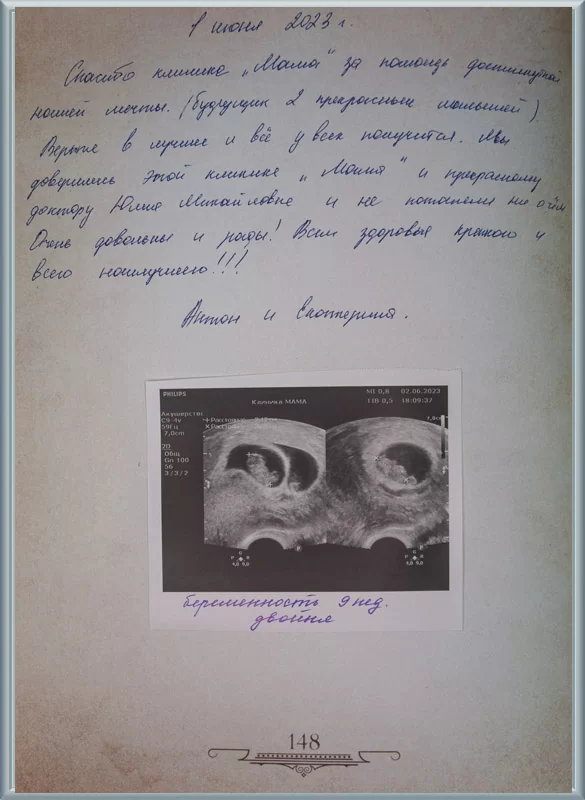 1 июня 2023 г.
Спасибо клинике „Мама" за помощь достигнутой
нашей мечты. (будущих 2 прекрасных малышей)
Верьте в лучшее и всё у всех получится. Мы
доверились этой клинике „Мама" и прекрасному
доктору Юлия Михайловне и не пожалели ни о чём
Очень довольны и рады! Всем здоровья крепкого и
всего наилучшего!!!
Антон и Екатерина.
PHILIPS
Клиника МАМА
MI 0,8 02.06.2023
TIB 0,5 18:09:37
Акушерство
C9-4v
59Гц
7,0cm
+Расстояние
×Расстояние
2D
Общ
Gn 100
56
3/3/2
P R
4,0 9,0
P R
4,0 9,0
беременность 9 нед.
двойня
148